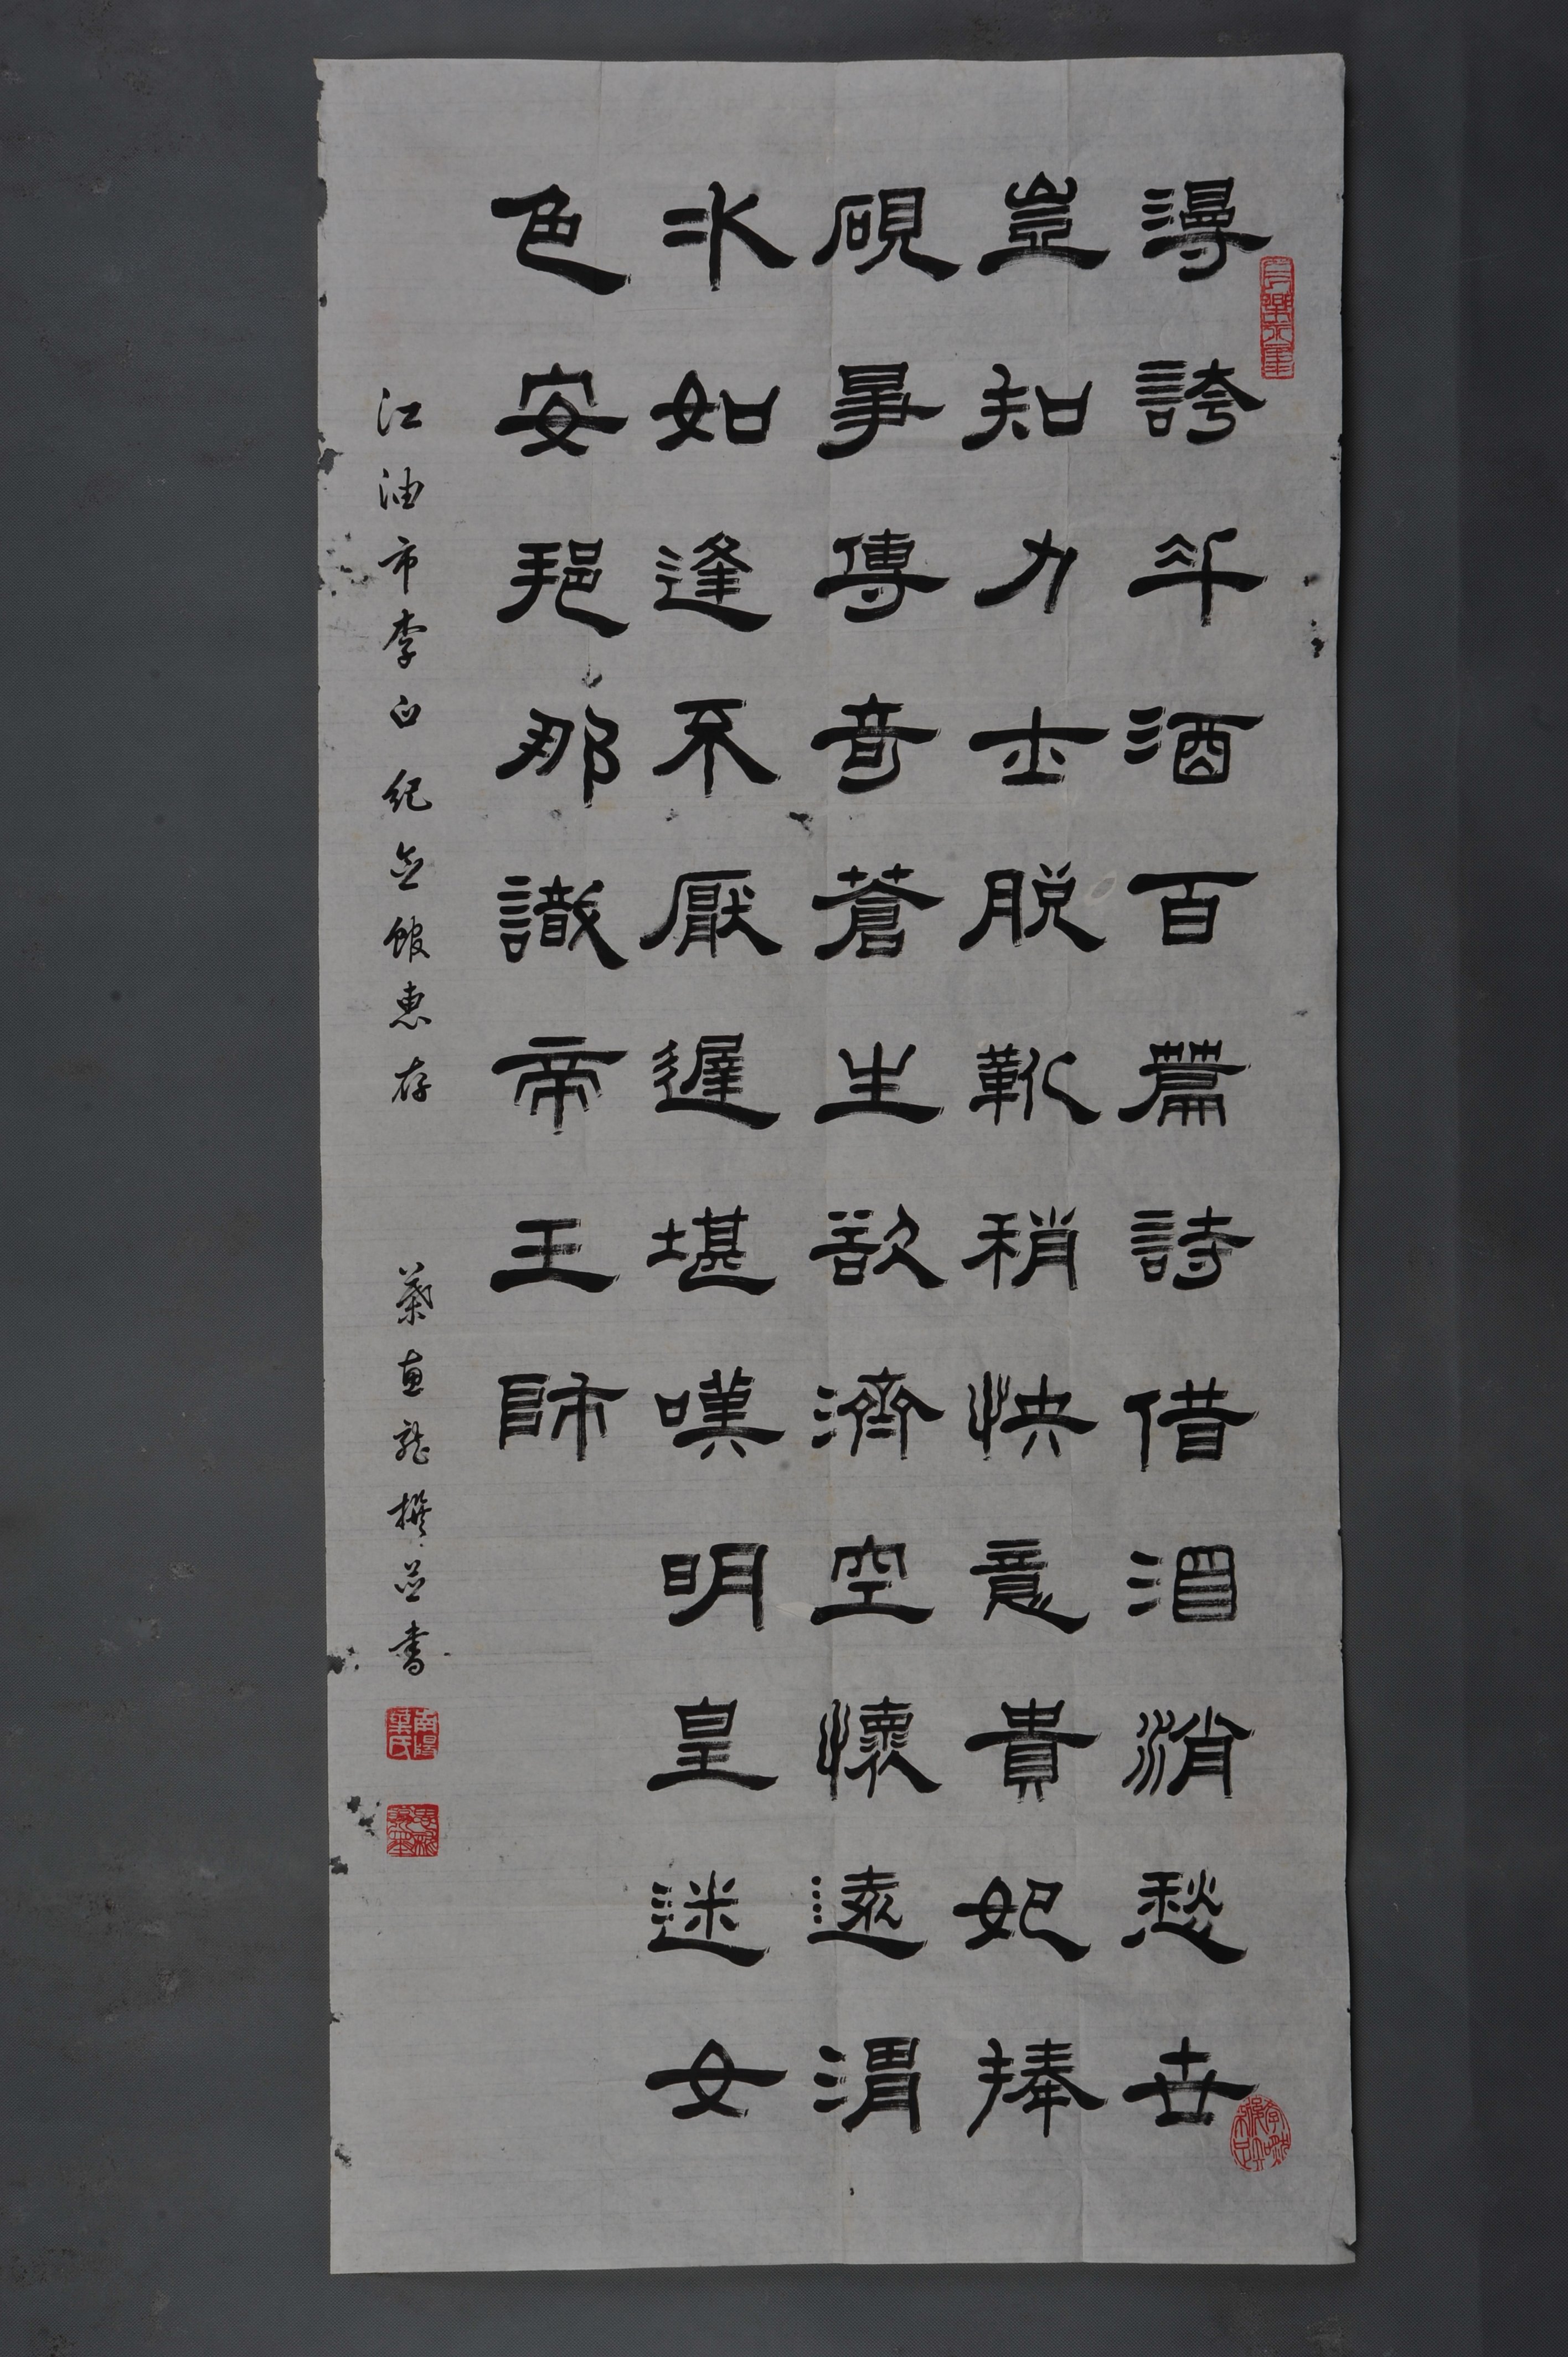 漫誇斗酒百篇詩借酒消愁世
豈知力士脱靴稍快意貴妃捧
硯事傳奇蒼生欲濟空懷遠渭
水如逢不厭遲堪嘆明皇迷女
色安邦那識帝王師
江油市李白紀念館惠存
葉直龍撰並書
南陽葉氏